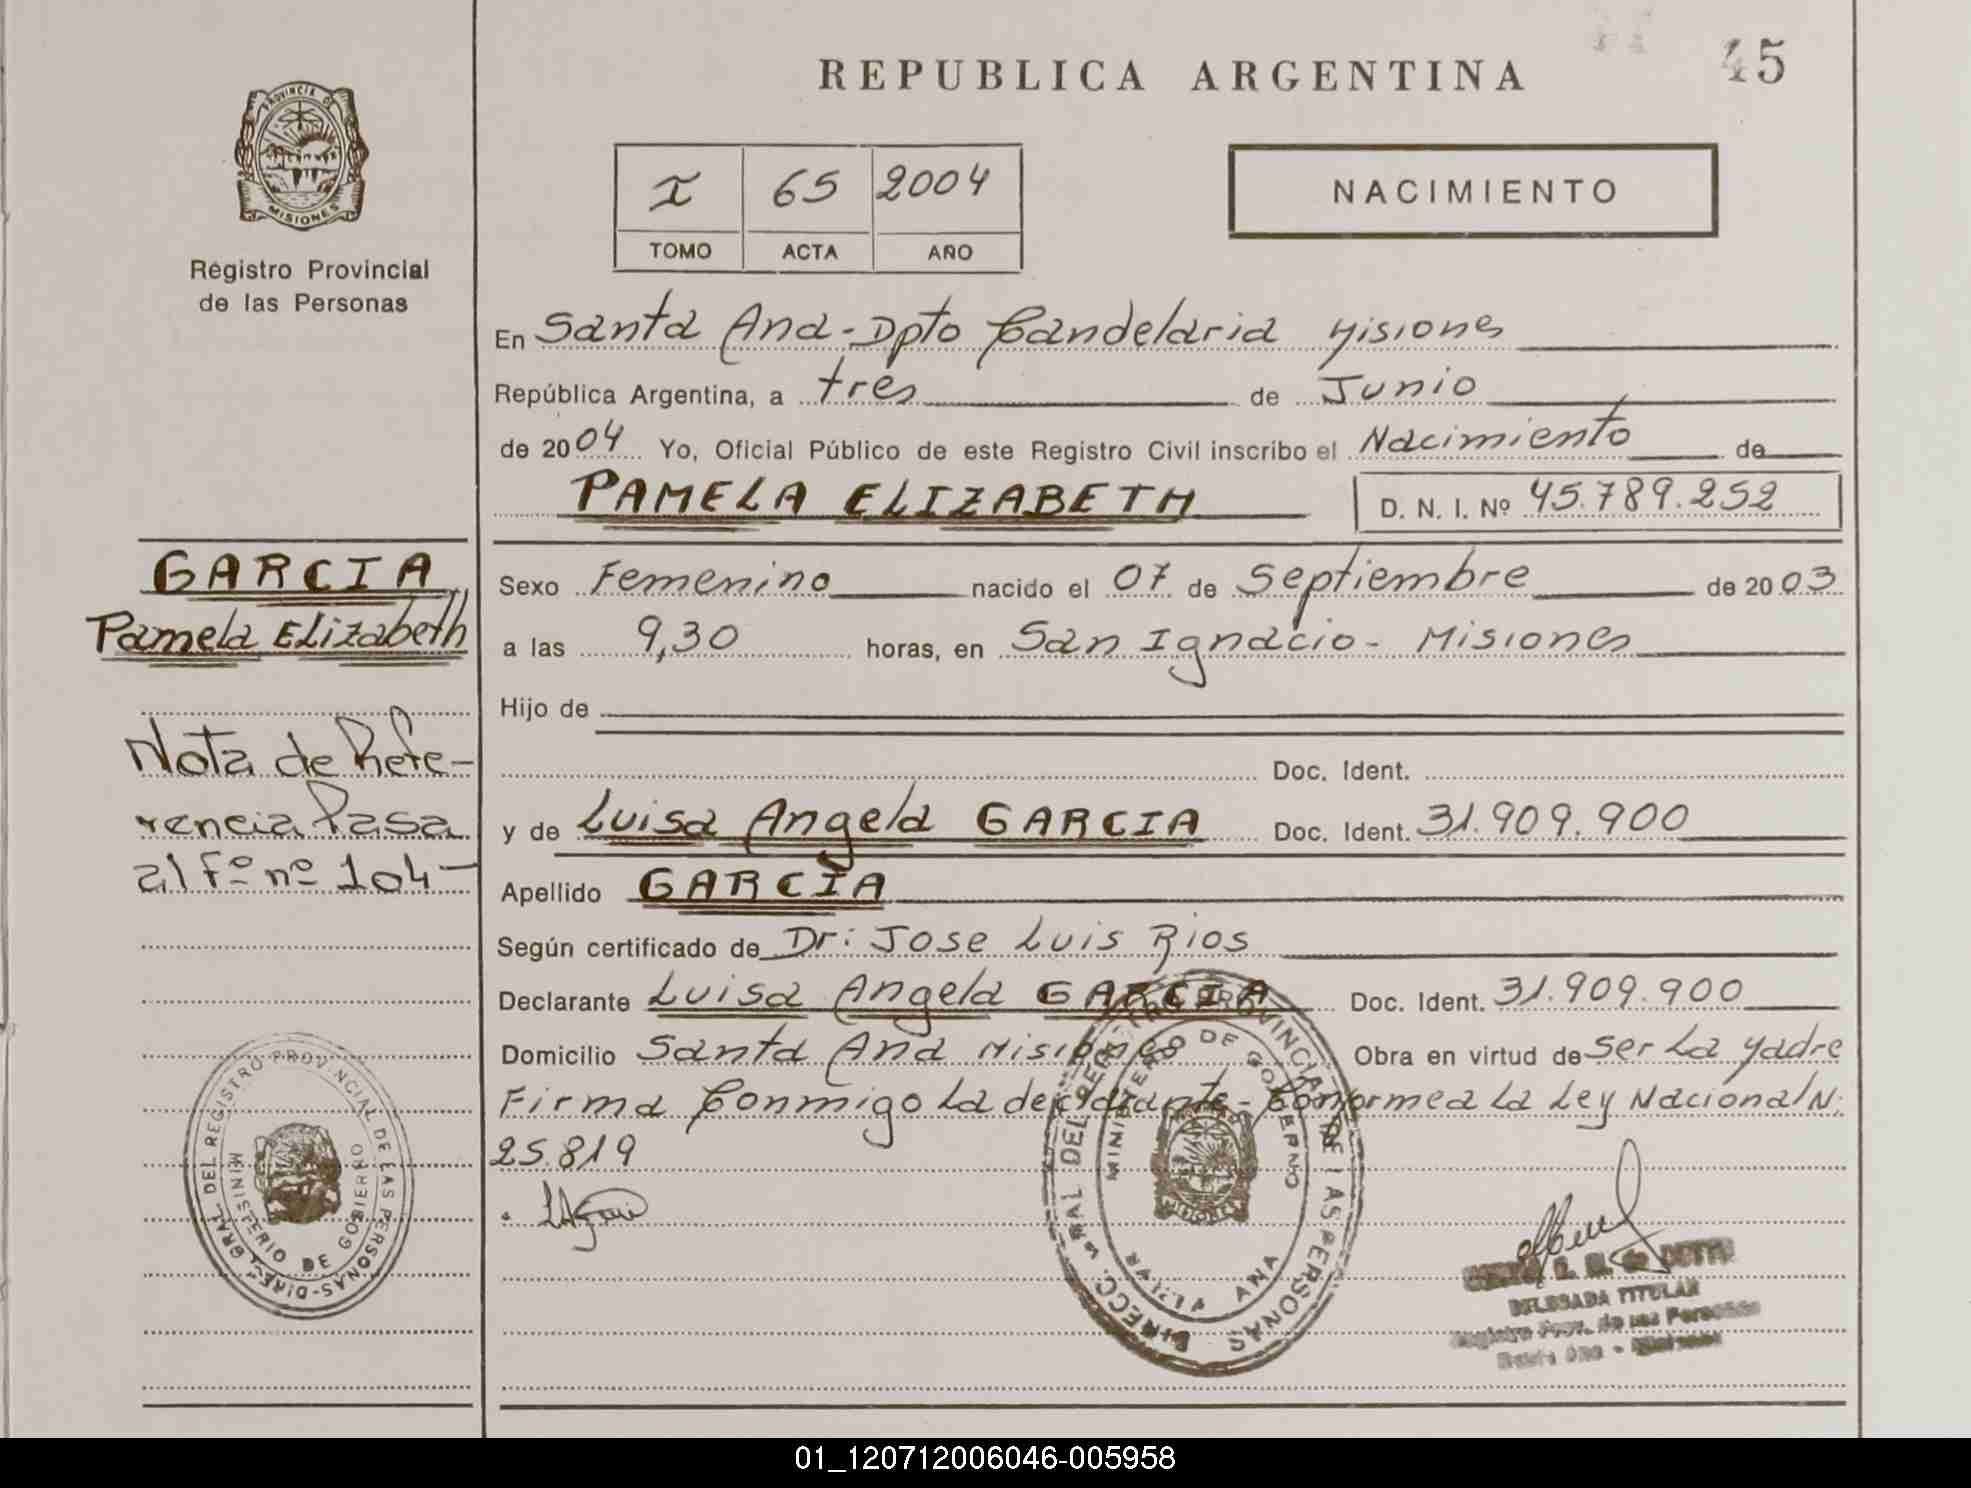 REPUBLICA ARGENTINA
45
PROVINCIA DE
MISIONES
Registro Provincial
de las Personas
I 65 2004
TOMO ACTA AÑO
NACIMIENTO
En Santa Ana - Dpto Candelaria Misiones
República Argentina, a tres de Junio
de 2004 Yo, Oficial Público de este Registro Civil inscribo el Nacimiento de
PAMELA ELIZABETH D. N. I. Nº 45.789.252
GARCIA
Pamela Elizabeth
Nota de Refe-
rencia Pasa
al Fº nº 104-
Sexo Femenino nacido el 07 de Septiembre de 2003
a las 9,30 horas, en San Ignacio - Misiones
Hijo de
Doc. Ident.
y de Luisa Angela GARCIA Doc. Ident. 31.909.900
Apellido GARCIA
Según certificado de Dr: Jose Luis Rios
Declarante Luisa Angela GARCIA Doc. Ident. 31.909.900
Domicilio Santa Ana Misiones Obra en virtud de ser La Madre
Firma Conmigo La declarante - Conforme a La Ley Nacional N:
25.819
DIREC. GRAL. DEL REGISTRO PROVINCIAL DE LAS PERSONAS
MINISTERIO DE GOBIERNO
DIRECC. GRAL DEL REGISTRO PROVINCIAL DE LAS PERSONAS
MINISTERIO DE GOBIERNO
ANA
MISIONES
DELEGADA TITULAR
Registro Prov. de las Personas
Santa Ana - Misiones
01_120712006046-005958